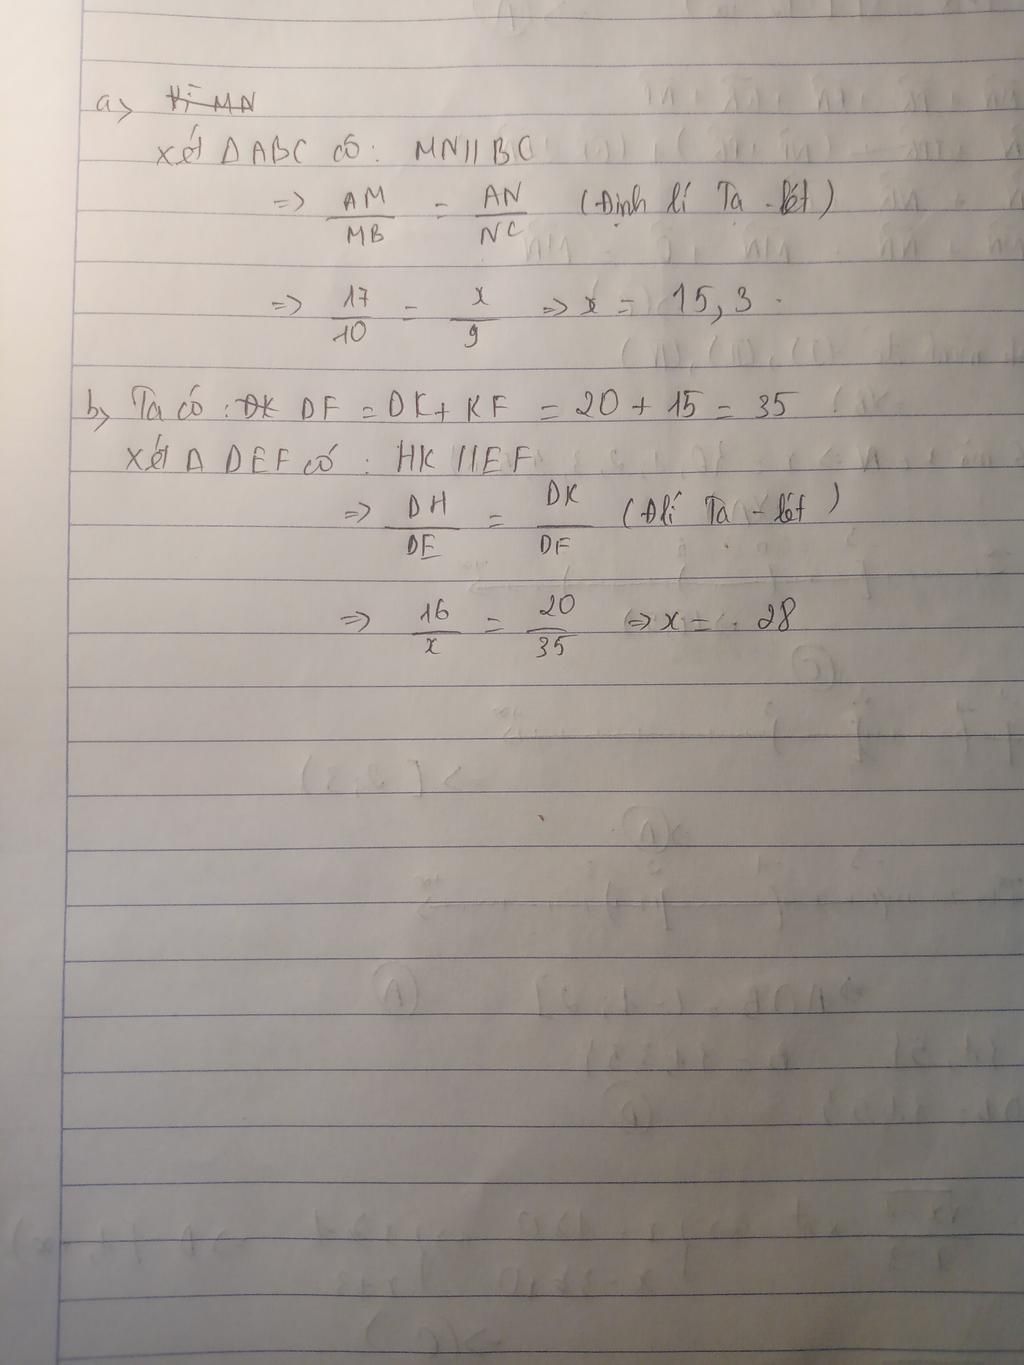 a) Vì MN
Xét Δ ABC có: MN // BC
=> AM/MB = AN/NC (Định lí Ta-lét)
=> 17/10 = x/9 => x = 15,3.
b) Ta có: DK DF = DK + KF = 20 + 15 = 35
Xét Δ DEF có: HK // EF
=> DH/DE = DK/DF (Đlí Ta-lét)
=> 16/x = 20/35 => x = 28